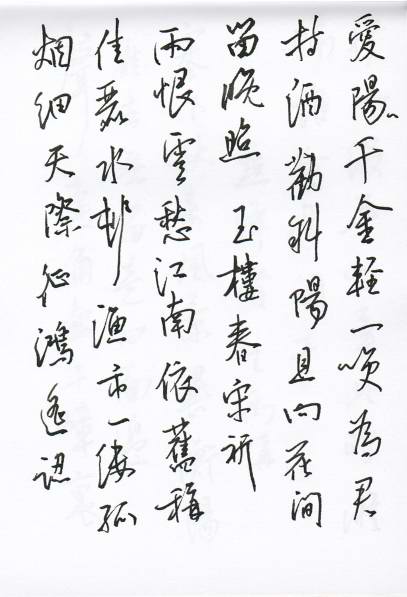 愛陽千金輕一咲為君
持酒勸斜陽且向花間
留晚照 玉樓春宋祁
雨恨雲愁江南依舊稱
佳麗水邨漁市一縷孤
烟細天際征鴻遙認